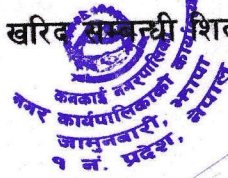 खरिद सम्बन्धी
कनकाई नगरपालिका
नगर कार्यपालिकाको कार्यालय
जामुनबारी, झापा
१ नं. प्रदेश, नेपाल